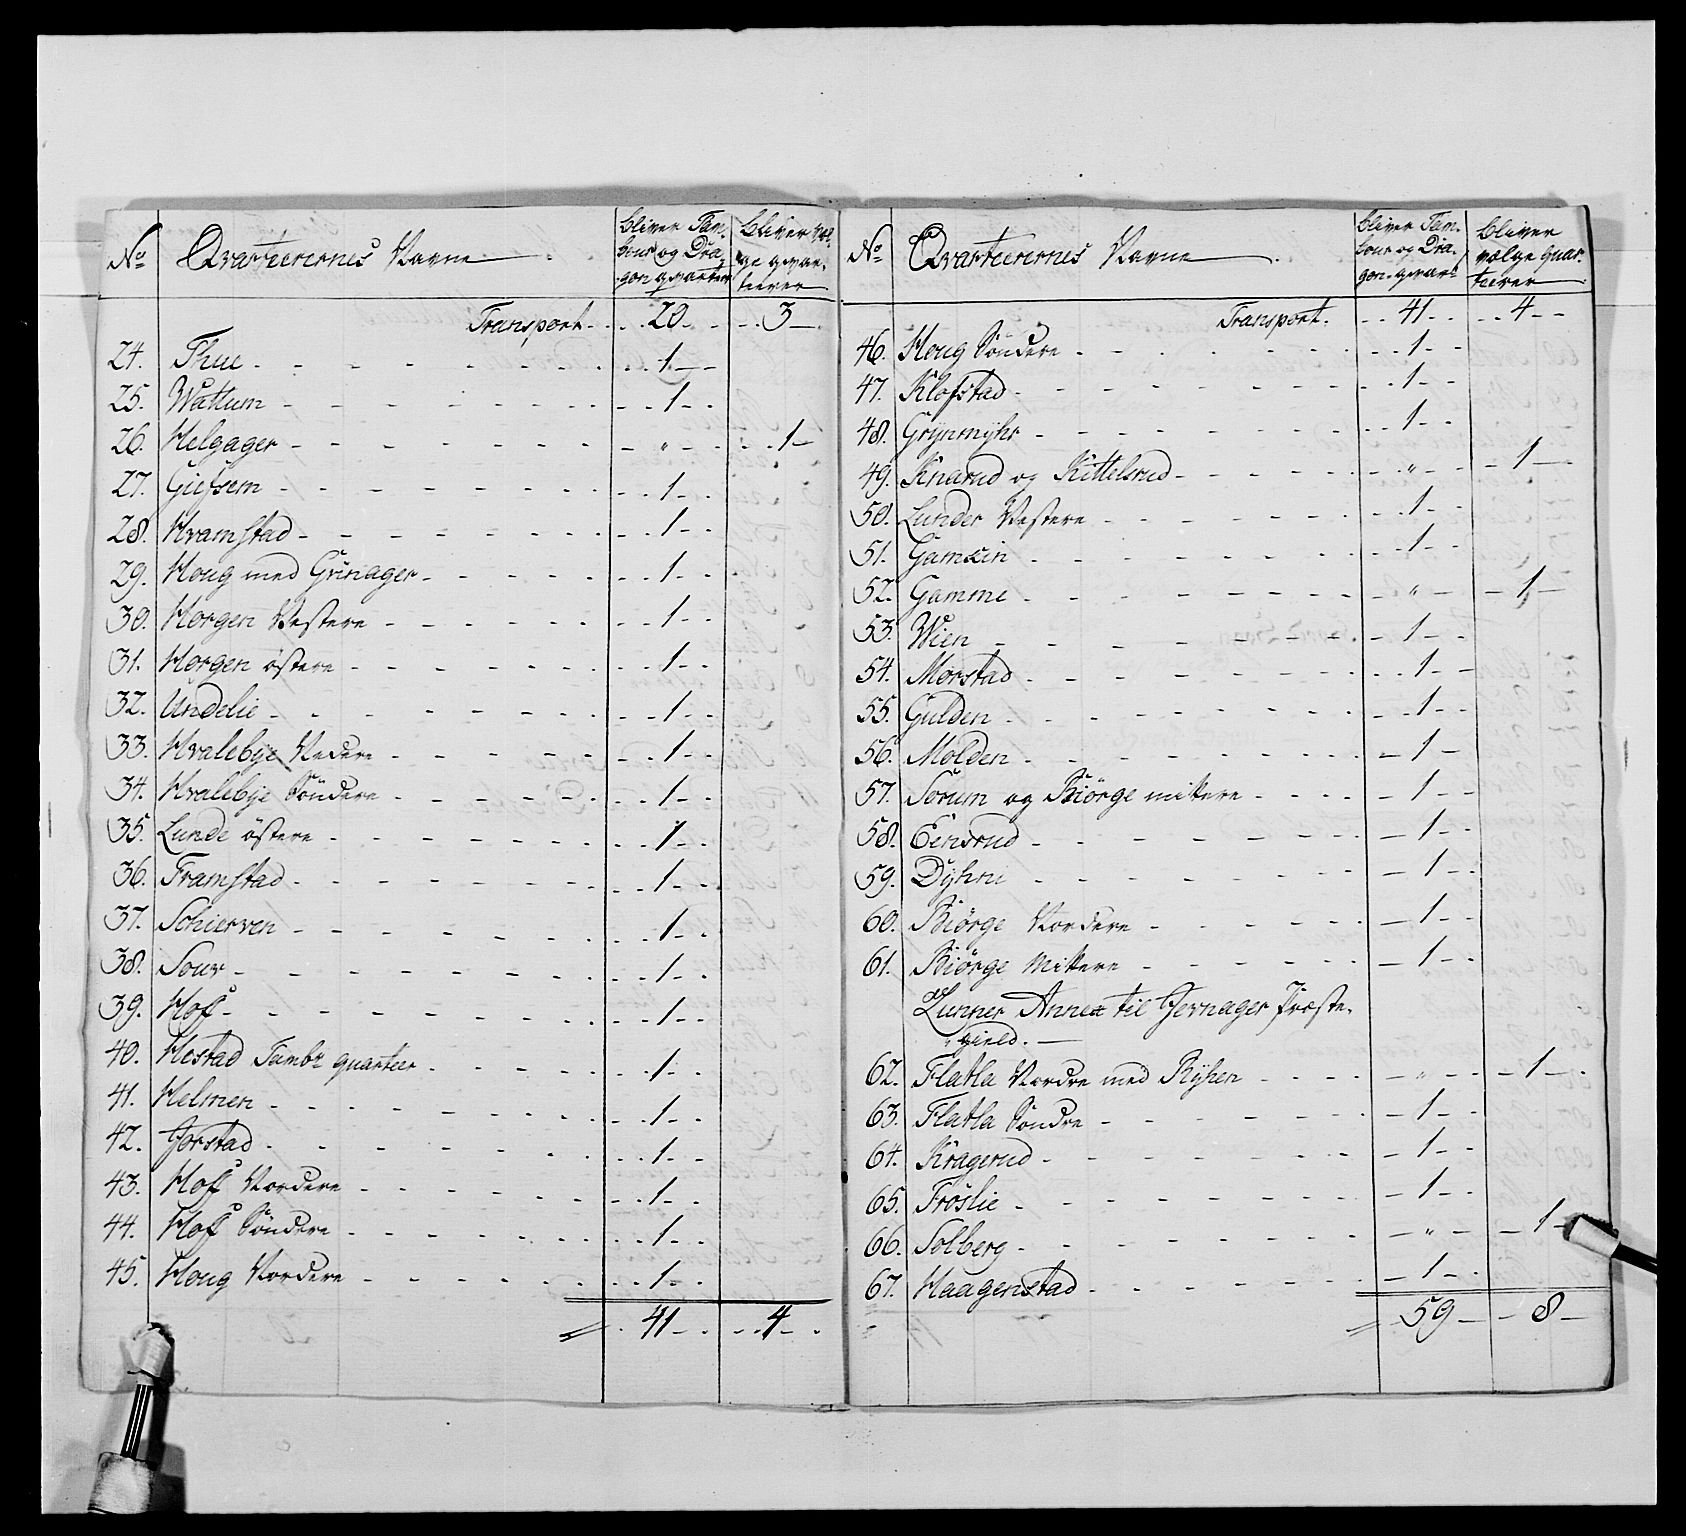 No Qvarteerernes Navne bliver Tam- bliver væl-
bour og Dra- ge qvar-
gon qvarteer teerer
Transport 20 3
24. Thue 1
25. Wattum 1
26. Helgager " 1
27. Giefsem 1
28. Hvamstad 1
29. Houg med Grinager 1
30. Horgen Vestere 1
31. Horgen östere 1
32. Undelie 1
33. Hvalebye Nedere 1
34. Hvalebye Söndere 1
35. Lunde östere 1
36. Framstad 1
37. Schierven 1
38. Sour 1
39. Hof 1
40. Hestad Tambr quarteer 1
41. Helmen 1
42. Jorstad 1
43. Hof Nordere 1
44. Hof Söndere 1
45. Houg Nordere 1
41 4
No Qvarteerernes Navne bliver Tam- bliver
bour og Dra- vælge quar-
gon qvart teerer
Transport. 41 4
46. Houg Söndere 1
47. Klofstad 1
48. Grynmyhr 1
49. Knarud og Kittelsrud " 1
50. Lunder Vestere 1
51. Gamkin 1
52. Gamme " 1
53. Wien 1
54. Morstad 1
55. Gulden 1
56. Molden 1
57. Sorum og Biörge mittere 1
58. Eensrud 1
59. Dyhru 1
60. Biörge Nordere 1
61. Biörge Mittere 1
Lunner Annex til Jevnager Præste-
gield.
62. Flatla Nordre med Ryhen " 1
63. Flatla Söndre 1
64. Kragerud 1
65. Fröslie 1
66. Solberg " 1
67. Haagenstad 1
59 8